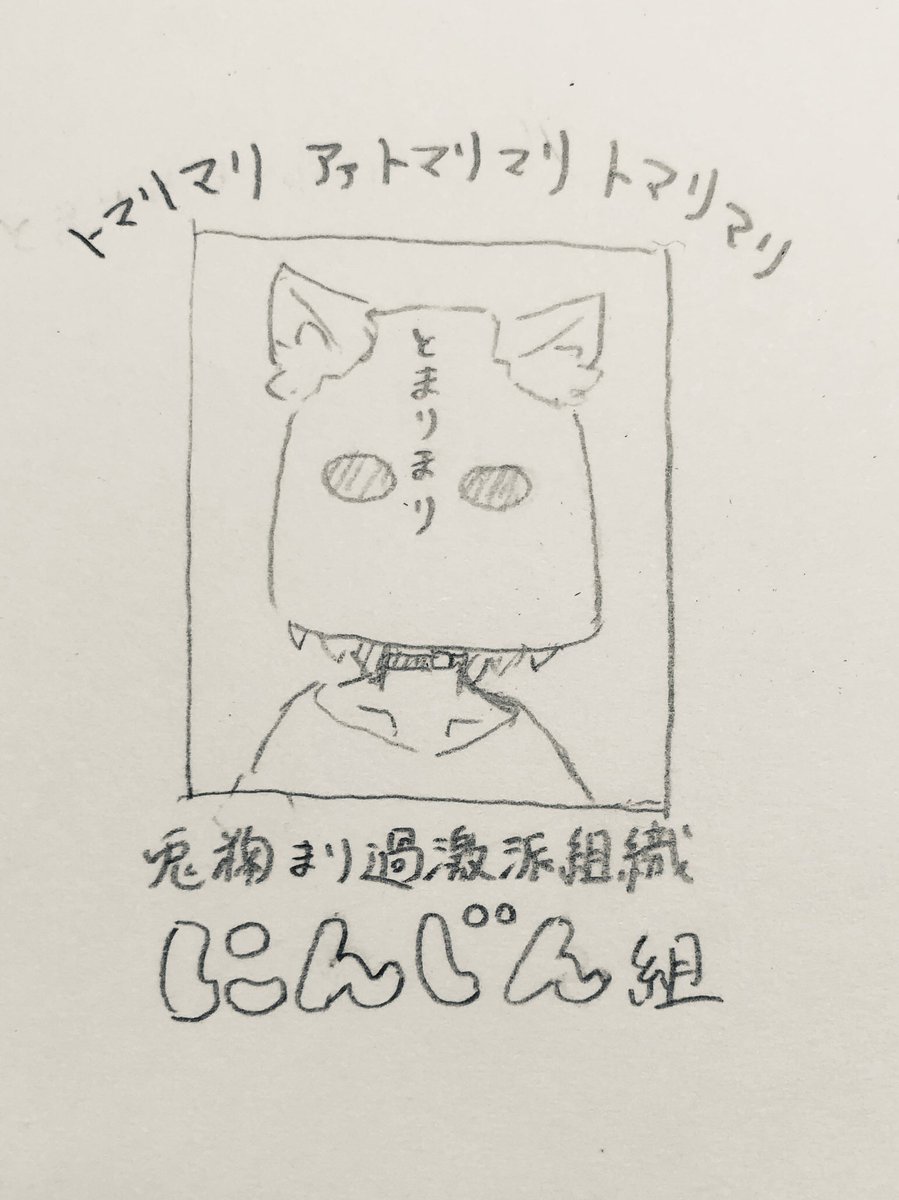 トマリマリ アァトマリマリ トマリマリ
とまりまり
兎鞠まり過激派組織
にんじん組